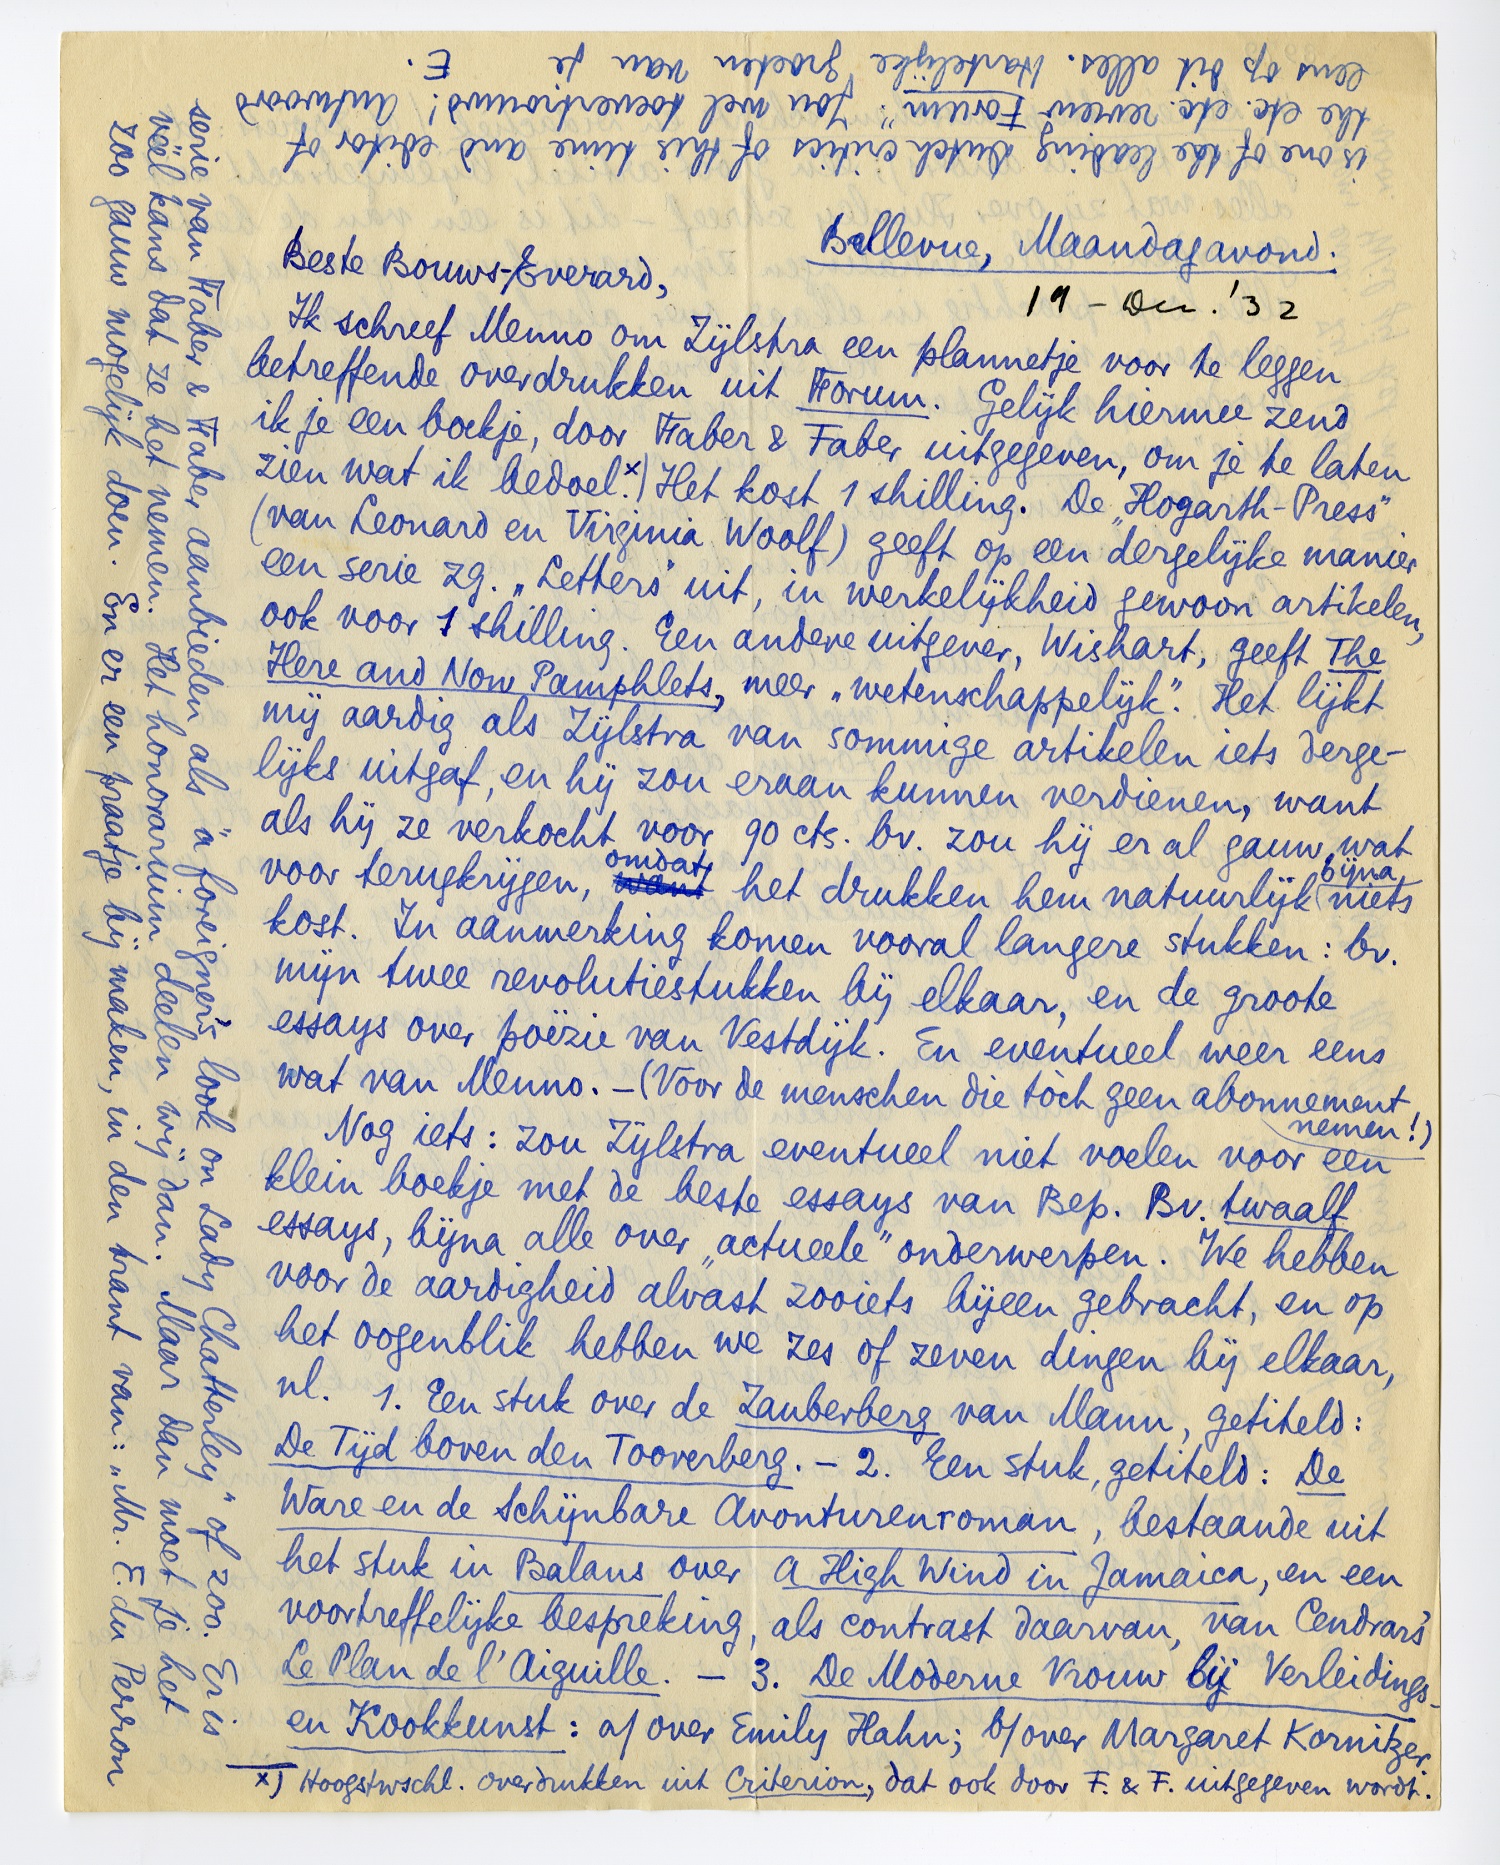 Bellevue, Maandagavond.
19 – Dec. '32
Beste Bouws-Everard,
Ik schreef Menno om Zijlstra een plannetje voor te leggen
betreffende overdrukken uit Forum. Gelijk hiermee zend
ik je een boekje, door Faber & Faber uitgegeven, om je te laten
zien wat ik bedoel.x) Het kost 1 shilling. De „Hogarth-Press”
(van Leonard en Virginia Woolf) geeft op een dergelijke manier
een serie zg. „Letters” uit, in werkelijkheid gewoon artikelen,
ook voor 1 shilling. Een andere uitgever, Wishart, geeft The
Here and Now Pamphlets, meer „wetenschappelijk”. Het lijkt
mij aardig als Zijlstra van sommige artikelen iets derge-
lijks uitgaf, en hij zou eraan kunnen verdienen, want
als hij ze verkocht voor 90 cts. bv. zou hij er al gauw wat
voor terugkrijgen, want omdat het drukken hem natuurlijk bijna niets
kost. In aanmerking komen vooral langere stukken: bv.
mijn twee revolutiestukken bij elkaar, en de groote
essays over poëzie van Vestdijk. En eventueel weer eens
wat van Menno. – (Voor de menschen die tòch geen abonnement
nemen!)
Nog iets: zou Zijlstra eventueel niet voelen voor een
klein boekje met de beste essays van Bep. Bv. twaalf
essays, bijna alle over „actueele” onderwerpen. We hebben
voor de aardigheid alvast zooiets bijeen gebracht, en op
het oogenblik hebben we zes of zeven dingen bij elkaar,
nl. 1. Een stuk over de Zauberberg van Mann, getiteld:
De Tijd boven den Tooverberg. – 2. Een stuk, getiteld: De
Ware en de Schijnbare Avonturenroman, bestaande uit
het stuk in Balans over A High Wind in Jamaica, en een
voortreffelijke bespreking, als contrast daarvan, van Cendrars'
Le Plan de l'Aiguille. – 3. De Moderne Vrouw bij Verleidings-
en Kookkunst: a/ over Emily Hahn; b/ over Margaret Kornitzer.
x) Hoogstwschl. overdrukken uit Criterion, dat ook door F. & F. uitgegeven wordt.
serie van Faber & Faber aanbieden als „a foreigner's look on Lady Chatterley” of zoo. Er is
véél kans dat ze het nemen. Het honorarium deelen wij dan. Maar dan moet je het
zoo gauw mogelijk doen. En er een praatje bij maken, in den trant van: „Mr. E. du Perron
is one of the leading Dutch critics of this time and editor of
the etc. etc. review Forum”. Jou wel toevertrouwd! Antwoord
eens op dit alles. Hartelijke groeten van je E.